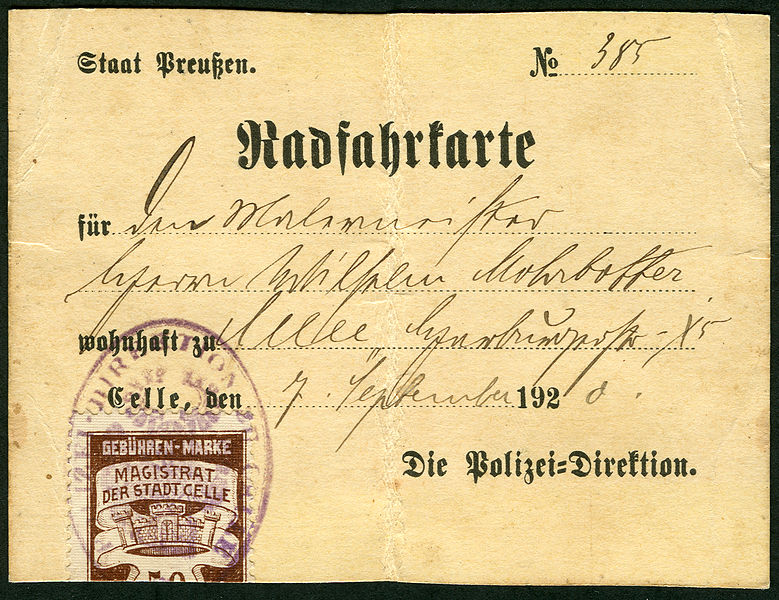 Staat Preußen. No 385
Radfahrkarte
für den Malermeister
Herrn Wilhelm Mohrbotter
wohnhaft zu Celle,
Celle, den 7. September 1920.
Die Polizei-Direktion.
GEBÜHREN-MARKE
MAGISTRAT
DER STADT CELLE
50